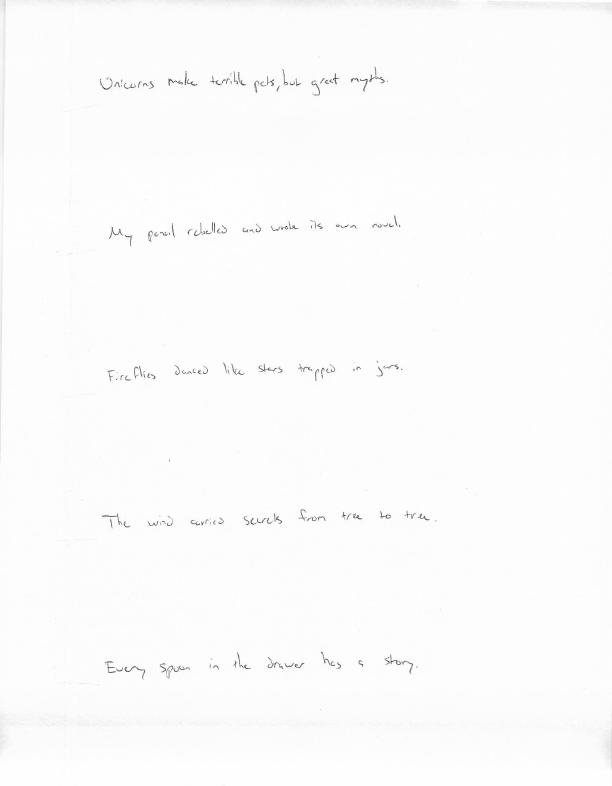 Unicorns make terrible pets, but great myths.
My pencil rebelled and wrote its own novel.
Fireflies danced like stars trapped in jars.
The wind carried secrets from tree to tree.
Every spoon in the drawer has a story.